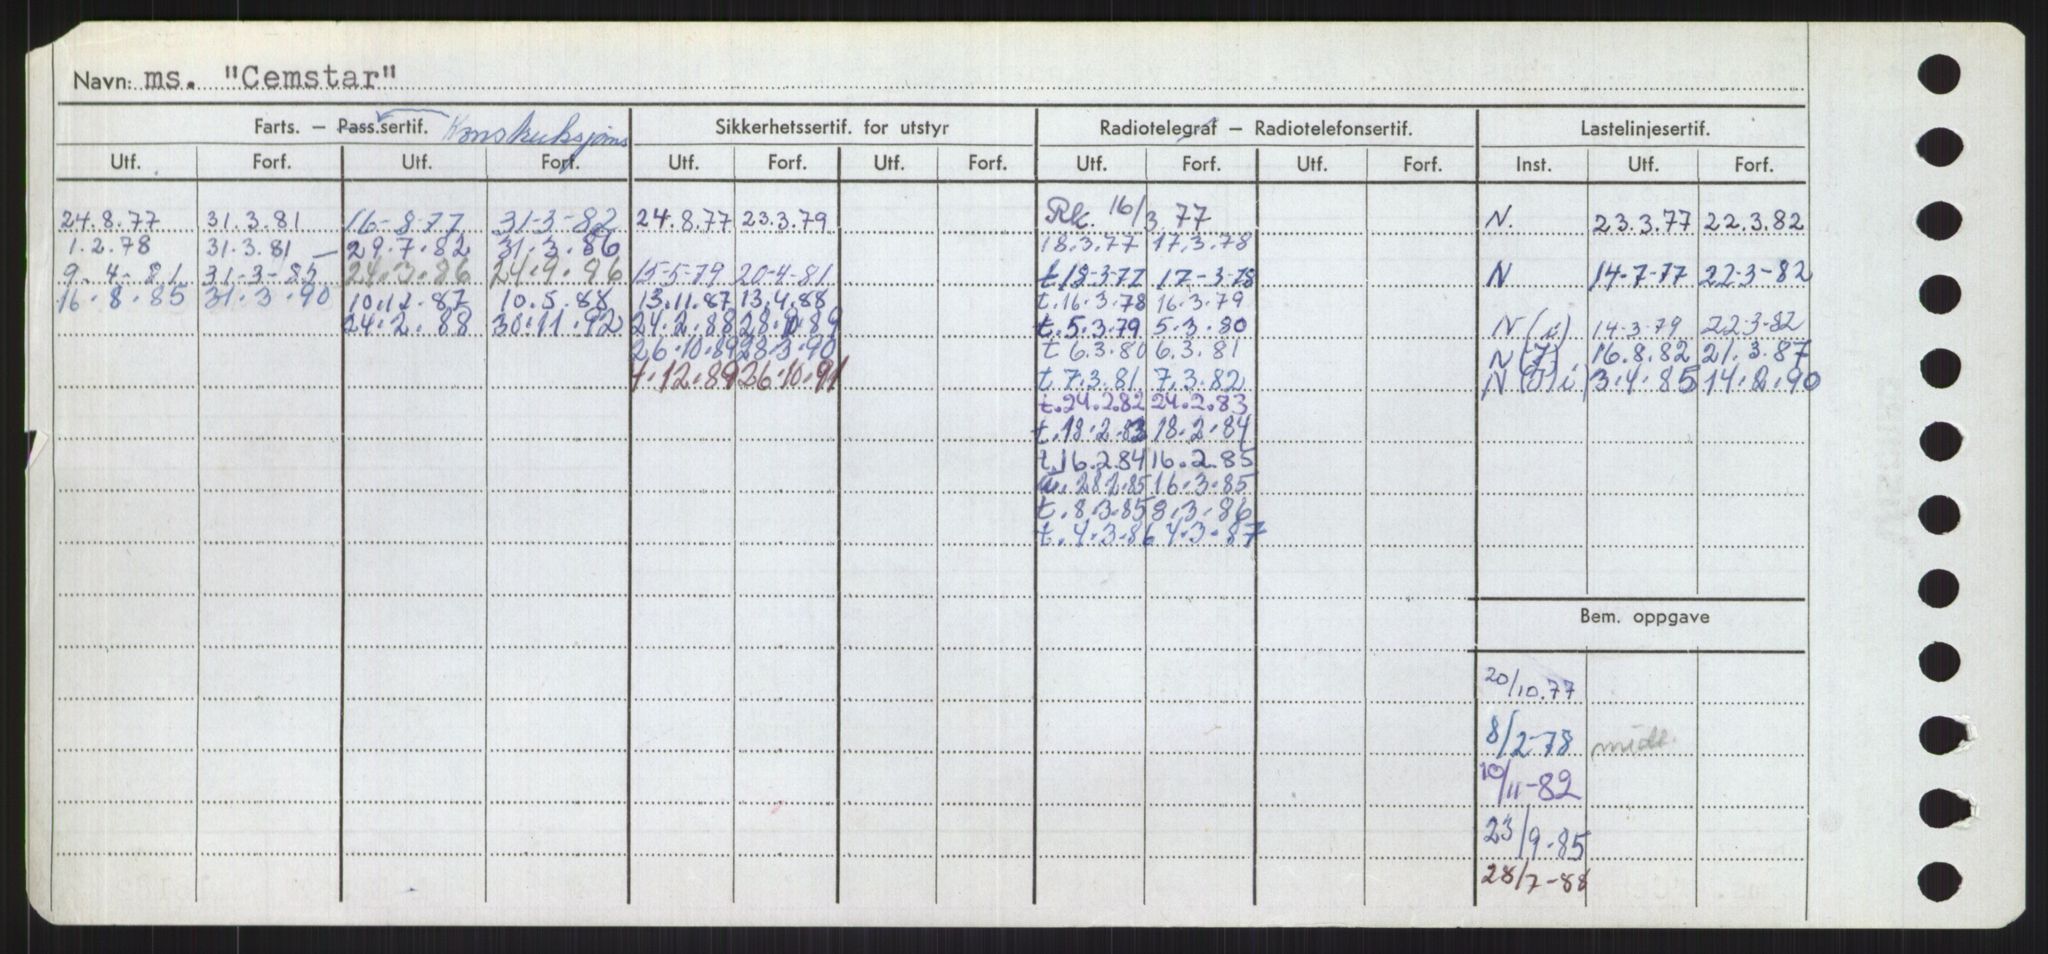 Navn: ms. "Cemstar"
Farts. — Pass.sertif. Konstruksjons Sikkerhetssertif. for utstyr Radiotelegraf — Radiotelefonsertif. Lastelinjesertif.
Utf. Forf. Utf. Forf. Utf. Forf. Utf. Forf. Utf. Forf. Utf. Forf. Inst. Utf. Forf.
24.8.77 31.3.81 16-8-77 31-3-82 24.8.77 23.3.79 Rk. 16/3.77 N. 23.3.77 22.3.82
1.2.78 31.3.81 — 29.7.82 31.3.86 18.3.77 17.3.78
9-4-81 31-3-85 24.3.86 24.9.86 15-5-79 20-4-81 t.18-3-77 17-3-78 N 14-7-77 22-3-82
16.8.85 31.3.90 10.12.87 10.5.88 13.11.87 13.4.88 t.16.3.78 16.3.79
24.2.88 30.11.92 24.2.88 28.10.89 t.5.3.79 5.3.80 N(i) 14-3-79 22-3-82
26.10.89 28.3.90 t 6.3.80 6.3.81 N(I). 16.8.82 21.3.87
7.12.89 26.10.91 t.7.3.81 7.3.82 N 3.4.85 14.2.90
t.24.2.82 24.2.83
t.18.2.83 18.2.84
t.16.2.84 16.2.85
28.2.85 16.3.85
t.8.3.85 8.3.86
t.4.3.86 4.3.87
Bem. oppgave
20/10.77
8/2-78 midl.
10/11-82
23/9.85
28/7-88